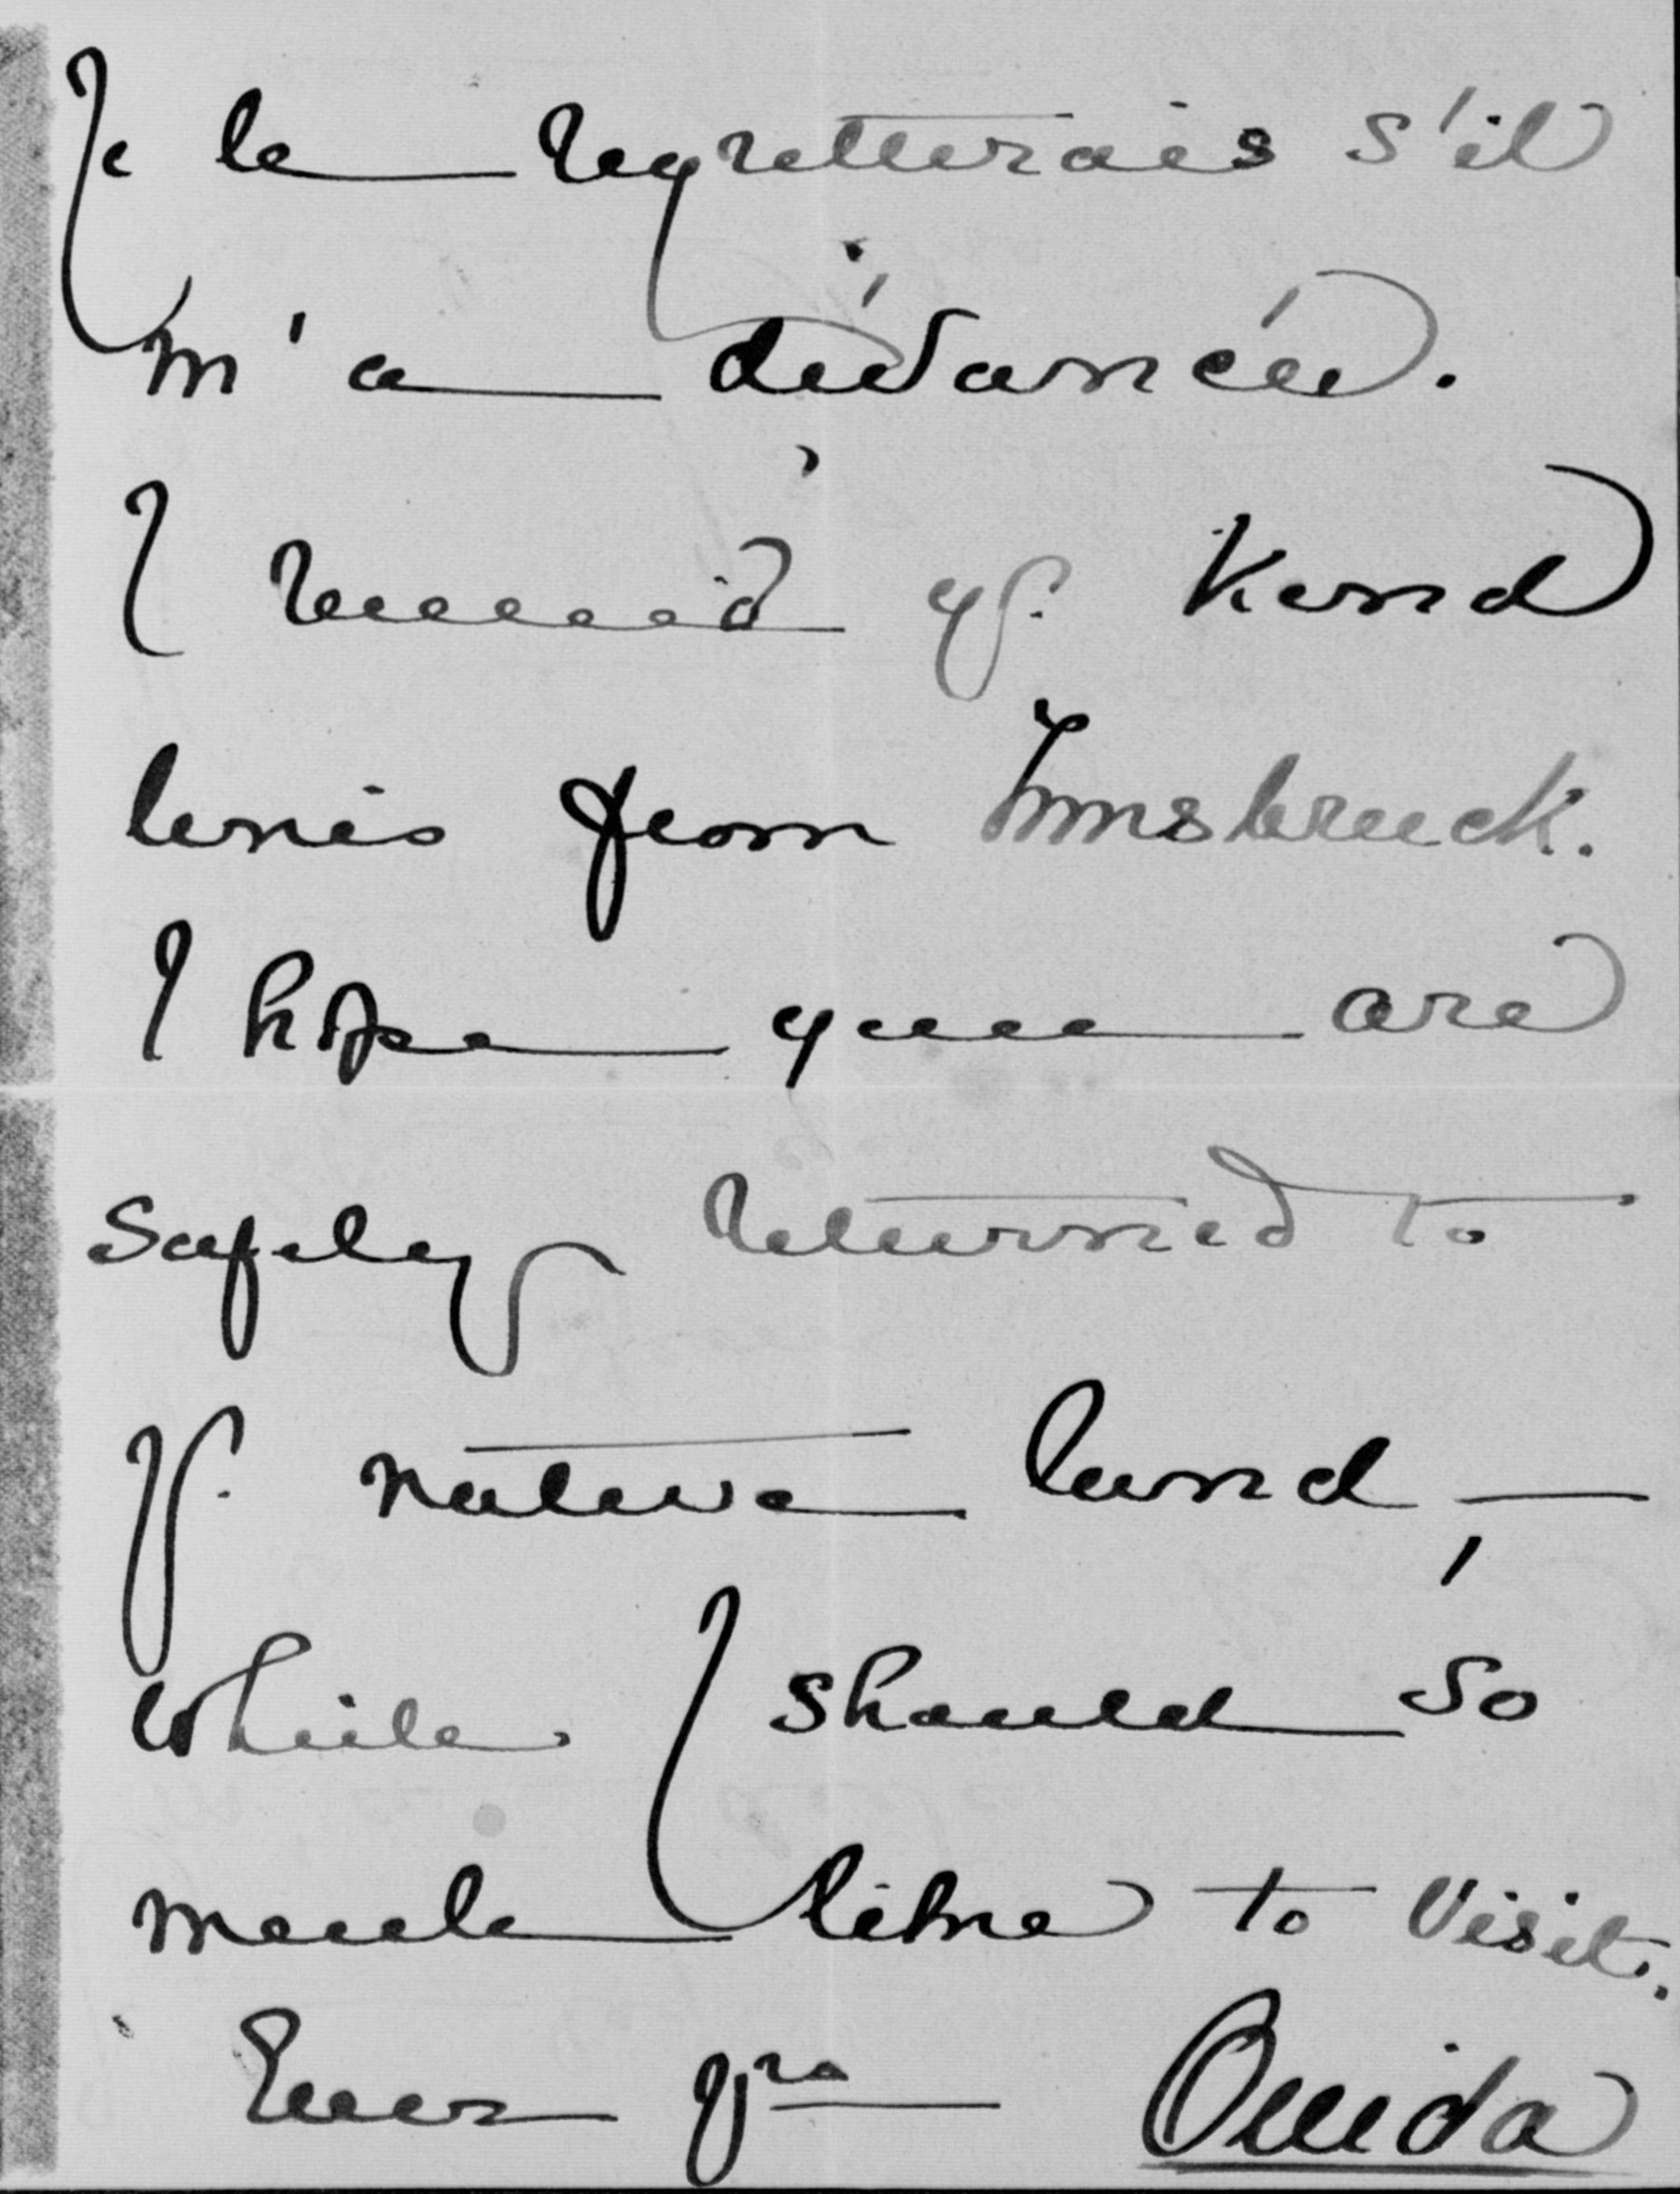 Je le regretterais s'il
m'a dévancée.
I received yr. kind
lines from Innsbruck.
I hope you are
safely returned to
yr. native land, —
while I should so
much like to visit.
Ever yrs Ouida